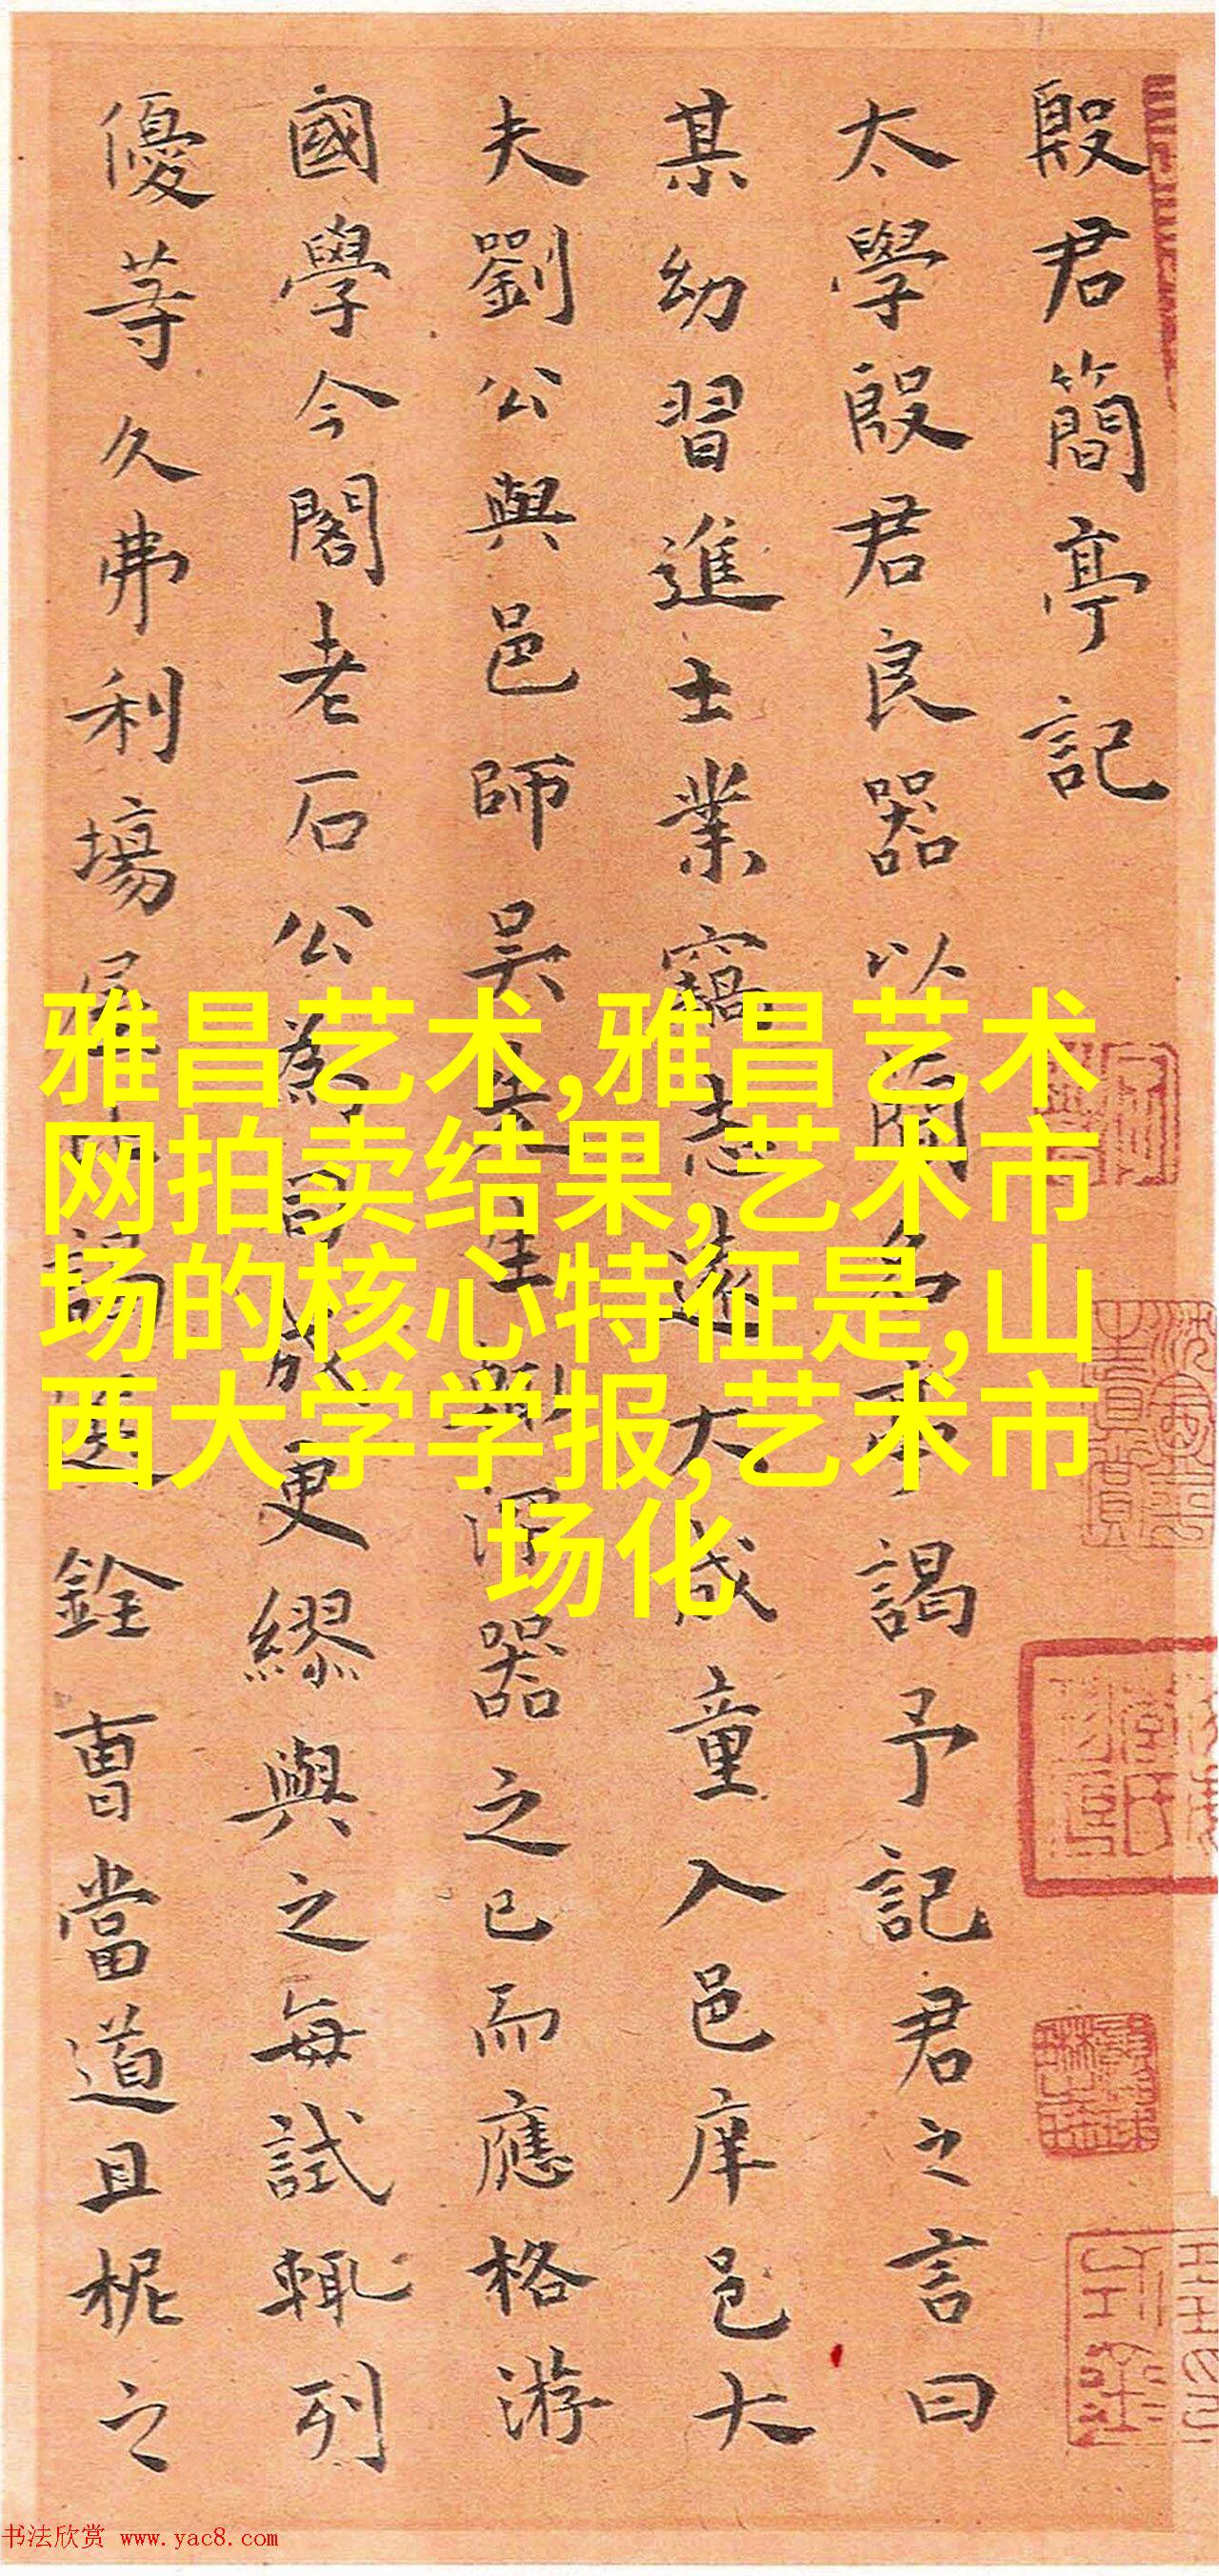 殷君簡亭記
太學殷君良器以簡名亭謁予記君之言曰
某幼習進士業竊志遠大成童入邑庠邑大
夫劉公與邑師吳生深器之已而應格游
國學今閣老石公為司成更繆與之每試輒列
優等久弗利場屋謁選銓曹當道且柅之
雅昌艺术,雅昌艺术
网拍卖结果,艺术市
场的核心特征是,山
西大学学报,艺术市
场化
书法欣赏 www.yac8.com